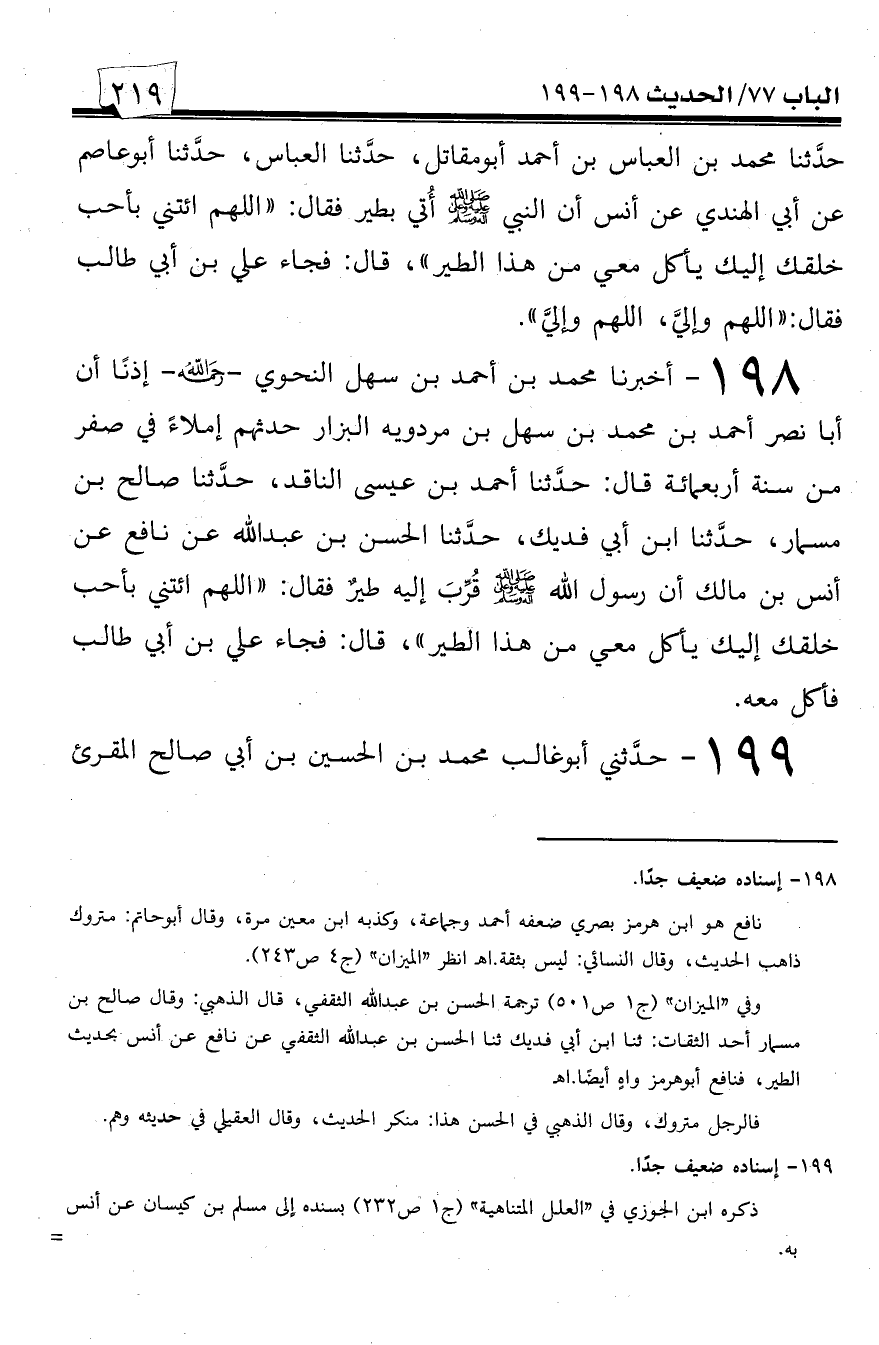 الباب ٧٧/ الحديث ١٩٨-١٩٩
٢١٩
حدَّثنا محمد بن العباس بن أحمد أبومقاتل، حدَّثنا العباس، حدَّثنا أبوعاصم
عن أبي الهندي عن أنس أن النبي ﷺ أُتي بطير فقال: «اللهم ائتني بأحب
خلقك إليك يأكل معي من هذا الطير»، قال: فجاء علي بن أبي طالب
فقال:«اللهم وإليَّ، اللهم وإليَّ».
١٩٨- أخبرنا محمد بن أحمد بن سهل النحوي -رحمه الله- إذنًا أن
أبا نصر أحمد بن محمد بن سهل بن مردويه البزار حدثهم إملاءً في صفر
من سنة أربعمائة قال: حدَّثنا أحمد بن عيسى الناقد، حدَّثنا صالح بن
مسمار، حدَّثنا ابن أبي فديك، حدَّثنا الحسن بن عبدالله عن نافع عن
أنس بن مالك أن رسول الله ﷺ قُرِّبَ إليه طيرٌ فقال: «اللهم ائتني بأحب
خلقك إليك يأكل معي من هذا الطير»، قال: فجاء علي بن أبي طالب
فأكل معه.
١٩٩- حدَّثني أبوغالب محمد بن الحسين بن أبي صالح المقرئ
١٩٨- إسناده ضعيف جدًا.
نافع هو ابن هرمز بصري ضعفه أحمد وجماعة، وكذبه ابن معين مرة، وقال أبوحاتم: متروك
ذاهب الحديث، وقال النسائي: ليس بثقة.اهـ انظر «الميزان» (ج٤ ص٢٤٣).
وفي «الميزان» (ج١ ص٥٠١) ترجمة الحسن بن عبدالله الثقفي، قال الذهبي: وقال صالح بن
مسمار أحد الثقات: ثنا ابن أبي فديك ثنا الحسن بن عبدالله الثقفي عن نافع عن أنس بحديث
الطير، فنافع أبوهرمز واهٍ أيضًا.اهـ
فالرجل متروك، وقال الذهبي في الحسن هذا: منكر الحديث، وقال العقيلي في حديثه وهم.
١٩٩- إسناده ضعيف جدًا.
ذكره ابن الجوزي في «العلل المتناهية» (ج١ ص٢٣٢) بسنده إلى مسلم بن كيسان عن أنس
به.
=